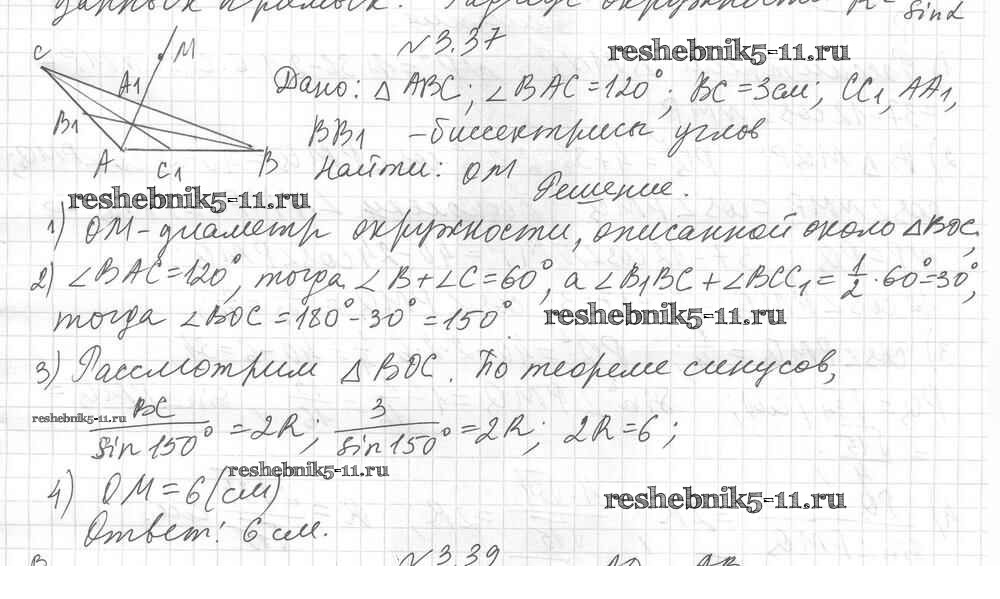 данных прямых. Радиус окружности R = sinα
№3.37
reshebnik5-11.ru
C
M
A1
B1
A
C1
B
Дано: △ ABC; ∠BAC = 120°; BC = 3см; CC1, AA1,
BB1 - биссектрисы углов
Найти: OM
Решение.
reshebnik5-11.ru
1) OM - диаметр окружности, описанной около △BOC,
2) ∠BAC = 120°, тогда ∠B + ∠C = 60°, а ∠B1BC + ∠BCC1 = 1/2 · 60° = 30°,
тогда ∠BOC = 180° - 30° = 150°
reshebnik5-11.ru
3) Рассмотрим △ BOC. По теореме синусов,
reshebnik5-11.ru
BC/sin150° = 2R; 3/sin150° = 2R; 2R = 6;
reshebnik5-11.ru
4) OM = 6 (см)
reshebnik5-11.ru
Ответ: 6 см.
№3.39